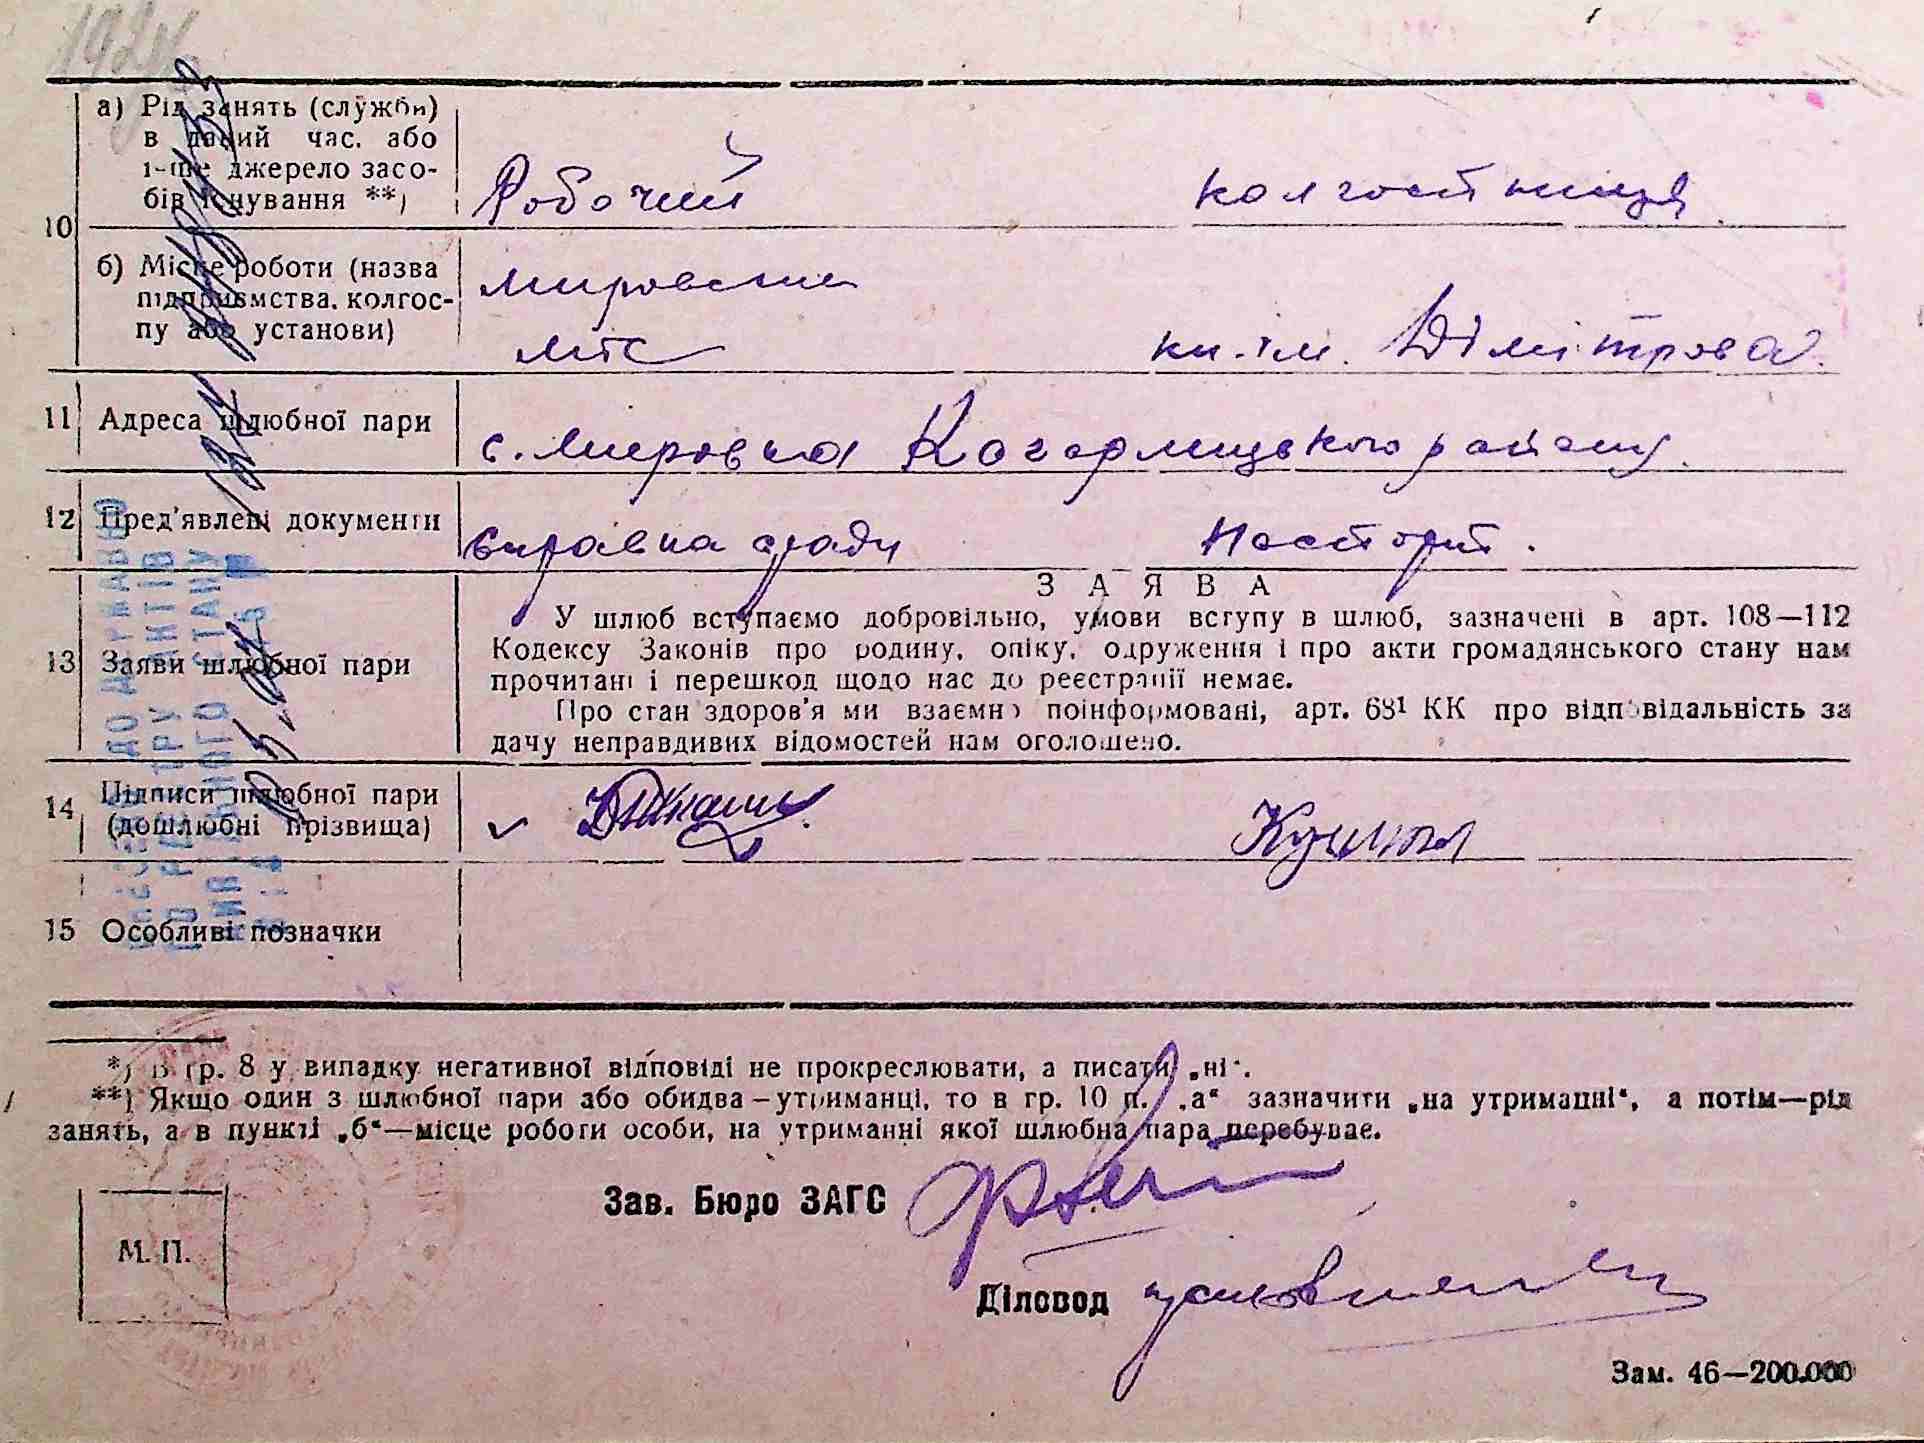 10 а) Рід занять (служби) в даний час, або інше джерело засобів існування **) Робочий колгоспниця
б) Місце роботи (назва підприємства, колгоспу або установи) Мировська МТС к-п ім. Дімітрова
11 Адреса шлюбної пари с. Мировка Кагарлицького району
12 Пред'явлені документи справка сради Паспорт.
13 Заяви шлюбної пари
ЗАЯВА
У шлюб вступаємо добровільно, умови вступу в шлюб, зазначені в арт. 108—112
Кодексу Законів про родину, опіку, одруження і про акти громадянського стану нам
прочитані і перешкод щодо нас до реєстрації немає.
Про стан здоров'я ми взаємно поінформовані, арт. 68¹ КК про відповідальність за
дачу неправдивих відомостей нам оголошено.
14 Підписи шлюбної пари (дошлюбні прізвища)
15 Особливі позначки
*) В гр. 8 у випадку негативної відповіді не прокреслювати, а писати „ні“.
**) Якщо один з шлюбної пари або обидва—утриманці, то в гр. 10 п. „а“ зазначити „на утриманні“, а потім—рід
занять, а в пункті „б“—місце роботи особи, на утриманні якої шлюбна пара перебуває.
Зав. Бюро ЗАГС
М. П.
Діловод
Зам. 46—200.000